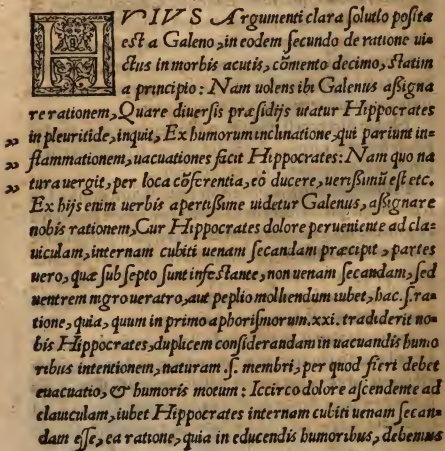 HVIVS Argumenti clara ſolutio poſita
eſt a Galeno, in eodem ſecundo de ratione ui=
ctus in morbis acutis, cõmento decimo, ſtatim
a principio: Nam uolens ibi Galenus aſſigna
re rationem, Quare diuerſis præſidijs utatur Hippocrates
„ in pleuritide, inquit, Ex humorum inclinatione, qui pariunt in=
„ flammationem, uacuationes facit Hippocrates: Nam quo na
„ tura uergit, per loca cõferentia, eò ducere, ueriſſimũ eſt etc.
Ex hijs enim uerbis apertiſſime uidetur Galenus, aſſignare
nobis rationem, Cur Hippocrates dolore perueniente ad cla=
uiculam, internam cubiti uenam ſecandam præcipit, partes
uero, quæ ſub ſepto ſunt infeſtante, non uenam ſecandam, ſed
uentrem nigro ueratro, aut peplio molliendum iubet, hac .ſ. ra=
tione, quia, quum in primo aphoriſmorum .xxi. tradiderit no=
bis Hippocrates, duplicem conſiderandam in uacuandis humo
ribus intentionem, naturam .ſ. membri, per quod fieri debet
euacuatio, & humoris motum: Iccirco dolore aſcendente ad
clauiculam, iubet Hippocrates internam cubiti uenam ſecan=
dam eſſe, ea ratione, quia in educendis humoribus, debemus